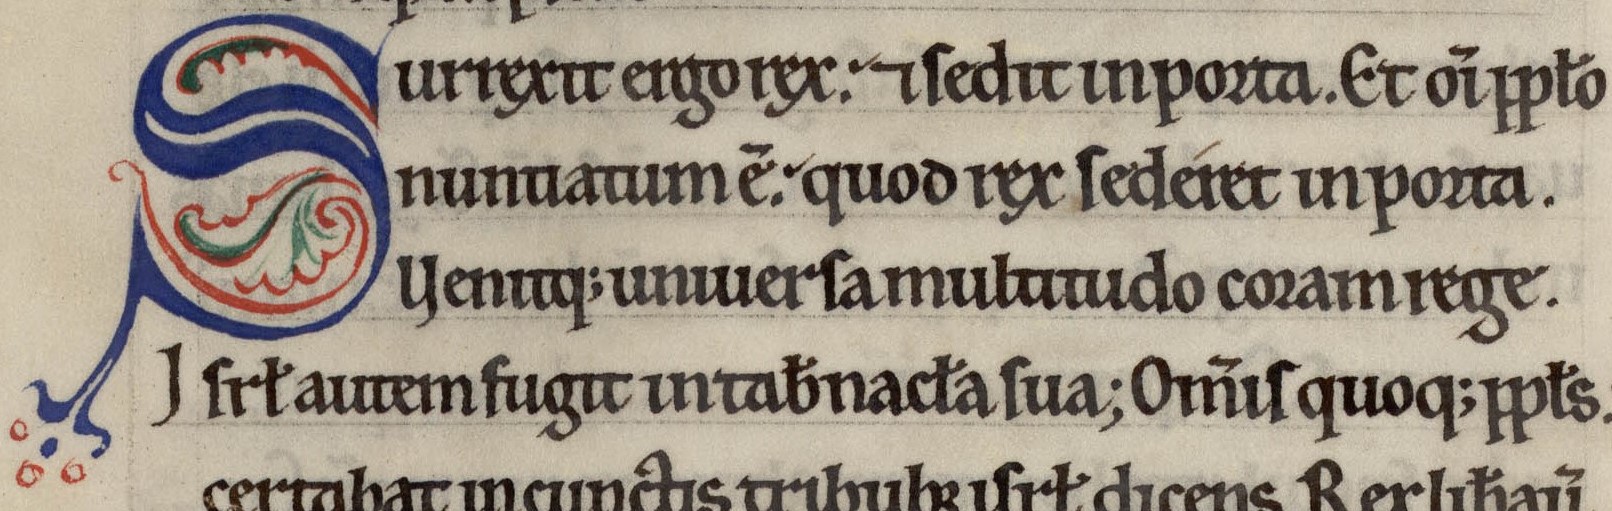 Surrexit ergo rex. ⁊ sedit in porta. Et oī ppło
nuntiatum ē. quod rex sederet in porta.
Uenitq; uniuersa multitudo coram rege.
Isrł autem fugit in tab̄nacła sua; Om̄is quoq; ppłs.
certabat in cunctis tribubꝫ isrł dicens. Rex lib̄auī